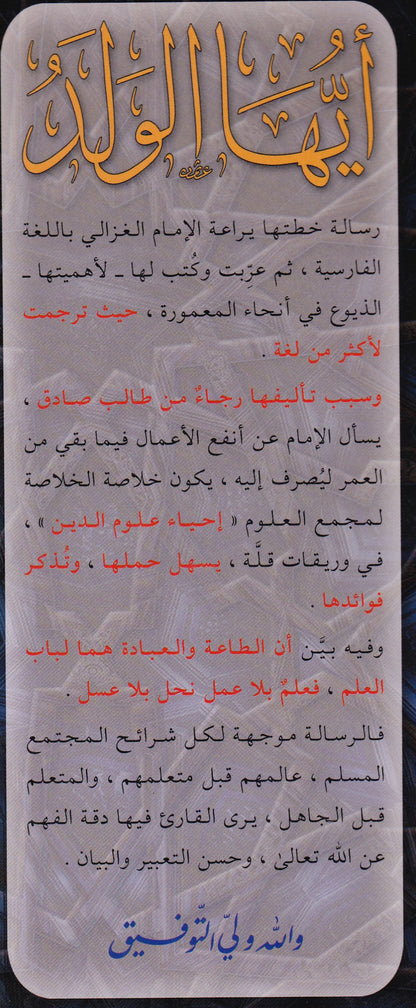 أيّها الولدُ
رسالة خطتها يراعة الإمام الغزالي باللغة
الفارسية ، ثم عرِّبت وكُتب لها ـ لأهميتها ـ
الذيوع في أنحاء المعمورة ، حيث ترجمت
لأكثر من لغة .
وسبب تأليفها رجاءٌ من طالب صادق ،
يسأل الإمام عن أنفع الأعمال فيما بقي من
العمر ليُصرف إليه ، يكون خلاصة الخلاصة
لمجمع العلوم « إحياء علوم الدين » ،
في وريقات قلَّة ، يسهل حملها ، وتُذكر
فوائدها .
وفيه بيَّن أن الطاعة والعبادة هما لباب
العلم ، فعلمٌ بلا عمل نحل بلا عسل .
فالرسالة موجهة لكل شرائح المجتمع
المسلم ، عالمهم قبل متعلمهم ، والمتعلم
قبل الجاهل ، يرى القارئ فيها دقة الفهم
عن الله تعالىٰ ، وحسن التعبير والبيان .
والله وليّ التّوفيق